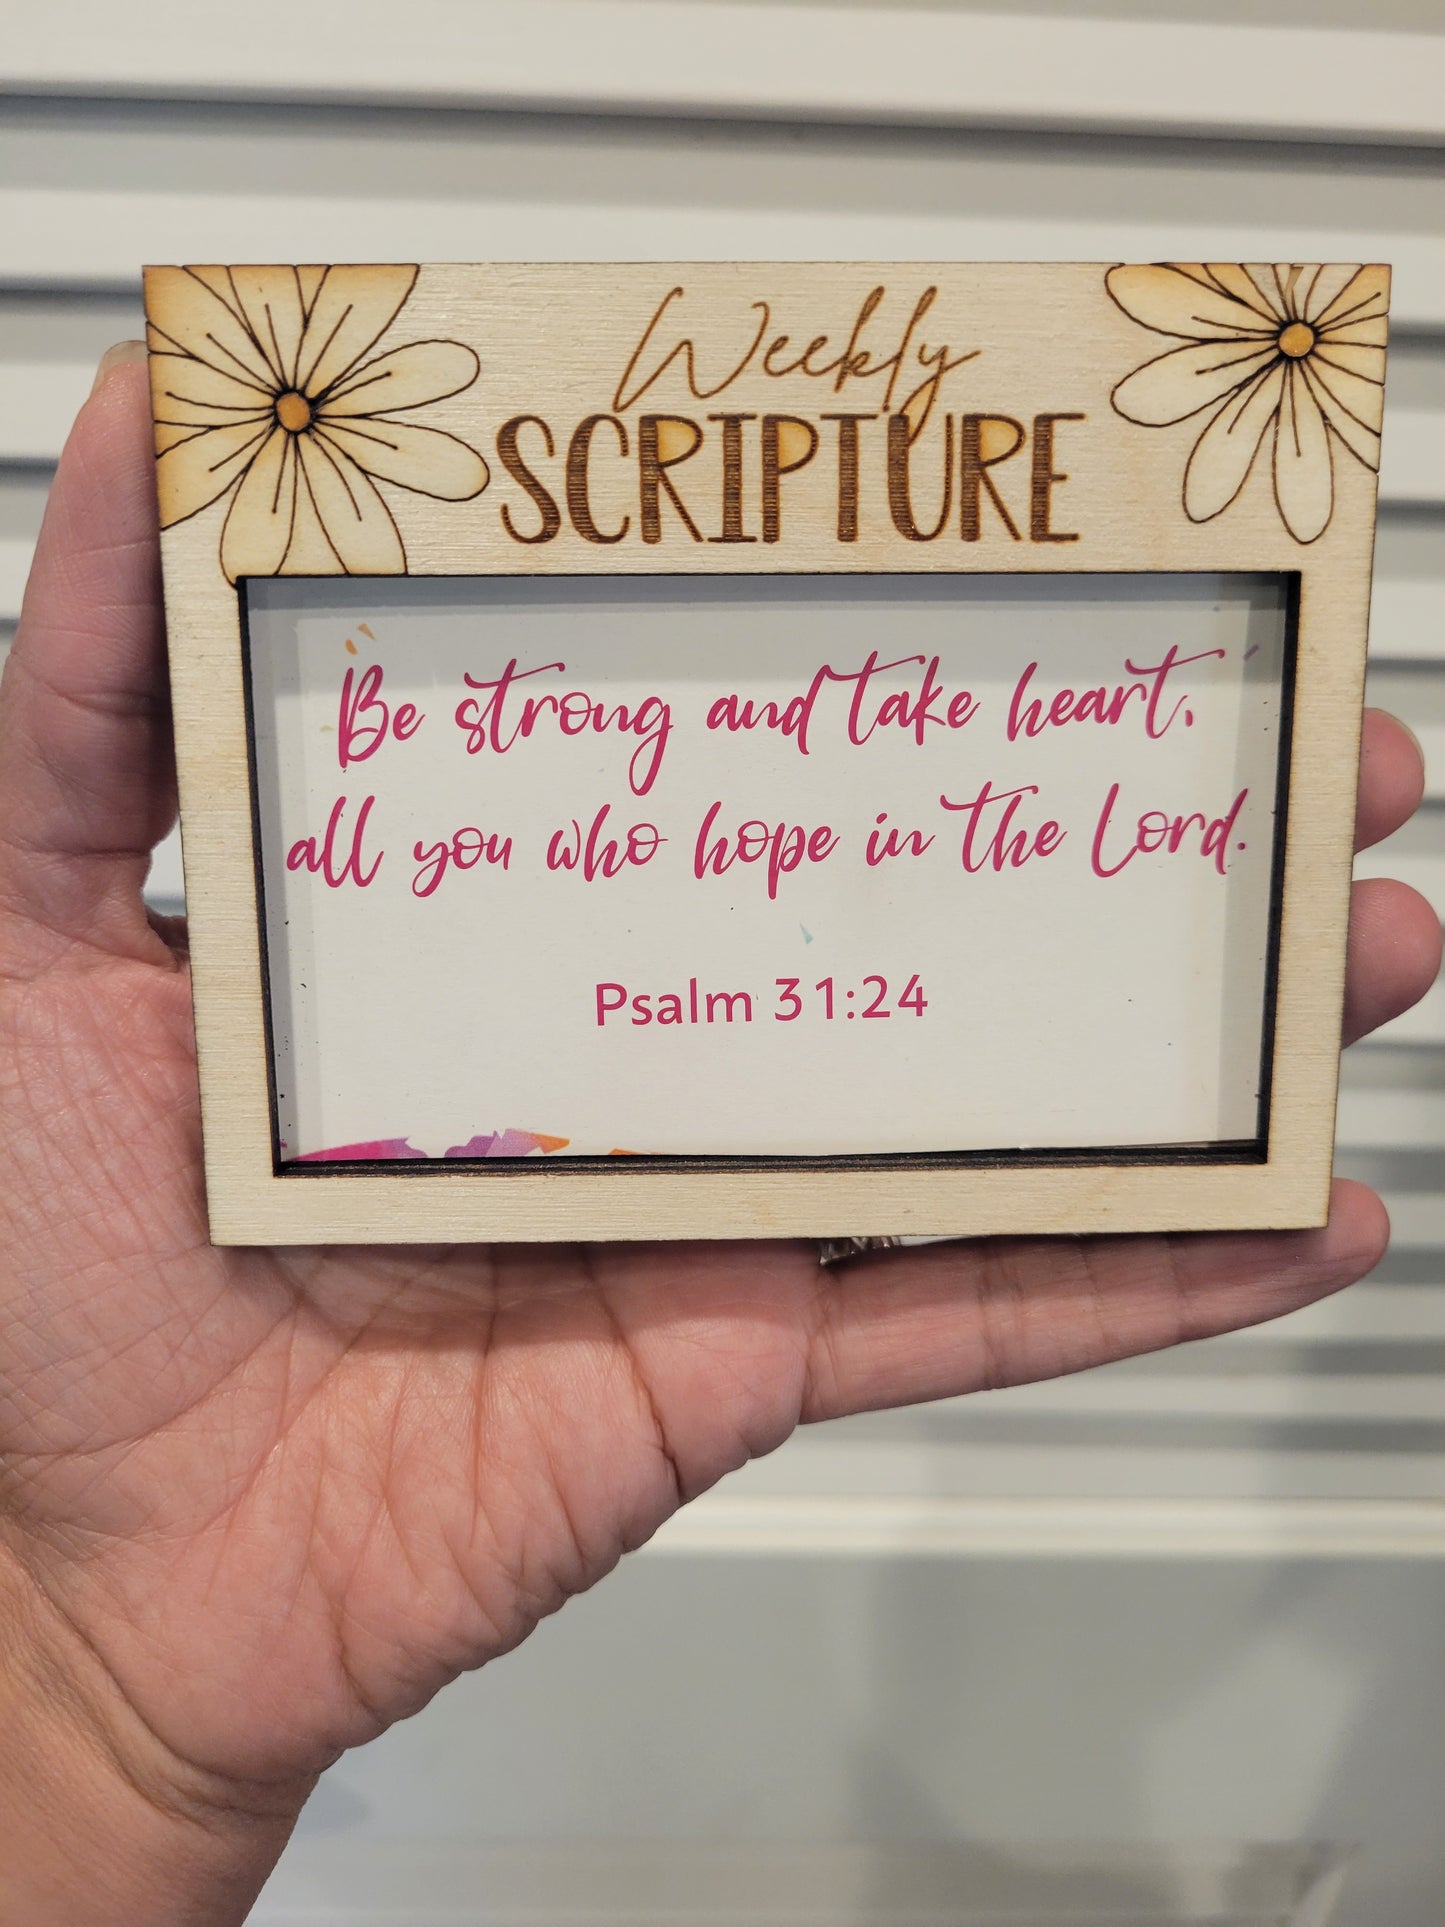 Weekly
SCRIPTURE
Be strong and take heart,
all you who hope in the Lord.
Psalm 31:24